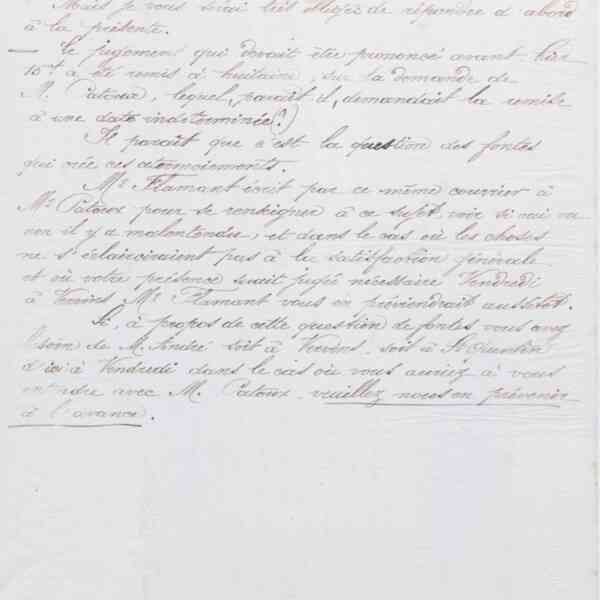 Mais je vous serai très obligé de répondre d'abord
à la présente.
— Le jugement qui devait être prononcé avant-hier
10ct a été remis à huitaine, sur la demande de
M. Patoux, lequel, paraît-il, demandait la remise
à une date indéterminée (?)
Il paraît que c'est la question des fontes
qui crée ces atermoiements.
Mr Flamant écrit par ce même courrier à
Mr Patoux pour se renseigner à ce sujet, voir si oui ou
non il y a malentendu, et dans le cas où les choses
ne s'éclairciraient pas à la satisfaction générale
et où votre présence serait jugée nécessaire Vendredi
à Vervins Mr Flamant vous en préviendrait aussitôt.
Si, à propos de cette question de fontes vous avez
besoin de M. André soit à Vervins, soit à St Quentin
d'ici à Vendredi dans le cas où vous auriez à vous
entendre avec M. Patoux, veuillez nous en prévenir
à l'avance.